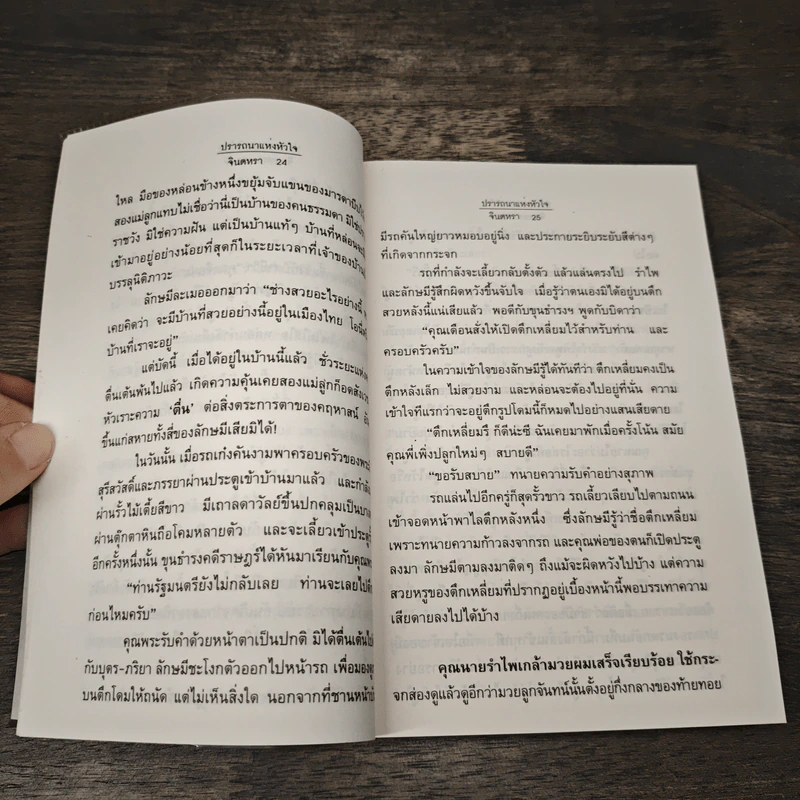 ปรารถนาแห่งหัวใจ
จินตหรา 24
ใหล มือของหล่อนข้างหนึ่งขยุ้มจับแขนของมารดา
สองแม่ลูกแทบไม่เชื่อว่านี่เป็นบ้านของคนธรรมดา มิใช่
ราชวัง มิใช่ความฝัน แต่เป็นบ้านแท้ๆ บ้านที่หล่อน
เข้ามาอยู่อย่างน้อยที่สุดก็ในระยะเวลาที่เจ้าของบ้าน
บรรลุนิติภาวะ
ลักษมีละเมอออกมาว่า “ช่างสวยอะไรอย่างนี้
เคยคิดว่า จะมีบ้านที่สวยอย่างนี้อยู่ในเมืองไทย
บ้านที่เราจะอยู่”
แต่บัดนี้ เมื่อได้อยู่ในบ้านนี้แล้ว ชั่วระยะ
ตื่นเต้นพ้นไปแล้ว เกิดความคุ้นเคยสองแม่ลูกก็อด
หัวเราะความ ‘ตื่น’ ต่อสิ่งตระการตาของคฤหาสน์
ขึ้นแก่สหายทั้งสี่ของลักษมีเสียมิได้!
ในวันนั้น เมื่อรถเก๋งคันงามพาครอบครัวของพระ
สุรีสวัสดิ์และภรรยาผ่านประตูเข้าบ้านมาแล้ว และกำลัง
ผ่านรั้วไม้เตี้ยสีขาว มีเถาลดาวัลย์ขึ้นปกคลุมเป็น
ผ่านตุ๊กตาหินถือโคมหลายตัว และจะเลี้ยวเข้าประตู
อีกครั้งหนึ่งนั้น ขุนธำรงคดีราษฎร์ได้หันมาเรียนกับคุณ
“ท่านรัฐมนตรียังไม่กลับเลย ท่านจะเลยไป
ก่อนไหมครับ”
คุณพระรับคำด้วยหน้าตาเป็นปกติ มิได้ตื่นเต้น
กับบุตร-ภริยา ลักษมีชะโงกตัวออกไปหน้ารถ เพื่อมอง
บนตึกโดมให้ถนัด แต่ไม่เห็นสิ่งใด นอกจากที่ชานหน้า
ปรารถนาแห่งหัวใจ
จินตหรา 25
มีรถคันใหญ่ยาวหมอบอยู่นิ่ง และประกายระยิบระยับสีต่างๆ
ที่เกิดจากกระจก
รถที่กำลังจะเลี้ยวกลับตั้งตัว แล้วแล่นตรงไป รำไพ
และลักษมีรู้สึกผิดหวังขึ้นจับใจ เมื่อรู้ว่าตนเองมิได้อยู่บนตึก
สวยหลังนี้แน่เสียแล้ว พอดีกับขุนธำรงฯ พูดกับบิดาว่า
“คุณเดือนสั่งให้เปิดตึกเหลี่ยมไว้สำหรับท่าน และ
ครอบครัวครับ”
ในความเข้าใจของลักษมีรู้ได้ทันทีว่า ตึกเหลี่ยมคงเป็น
ตึกหลังเล็ก ไม่สวยงาม และหล่อนจะต้องไปอยู่ที่นั่น ความ
เข้าใจที่แรกว่าจะอยู่ตึกรูปโดมนี้ก็หมดไปอย่างแสนเสียดาย
“ตึกเหลี่ยมรึ ก็ดีน่ะซี ฉันเคยมาพักเมื่อครั้งโน้น สมัย
คุณพี่เพิ่งปลูกใหม่ๆ สบายดี”
“ขอรับสบาย” ทนายความรับคำอย่างสุภาพ
รถแล่นไปอีกครู่ก็สุดรั้วขาว รถเลี้ยวเลียบไปตามถนน
เข้าจอดหน้าพาไลตึกหลังหนึ่ง ซึ่งลักษมีรู้ว่าชื่อตึกเหลี่ยม
เพราะทนายความก้าวลงจากรถ และคุณพ่อของตนก็เปิดประตู
ลงมา ลักษมีตามลงมาติดๆ ถึงแม้จะผิดหวังไปบ้าง แต่ความ
สวยหรูของตึกเหลี่ยมที่ปรากฏอยู่เบื้องหน้านี้พอบรรเทาความ
เสียดายลงไปได้บ้าง
คุณนายรำไพเกล้ามวยผมเสร็จเรียบร้อย ใช้กระ-
จกส่องดูแล้วดูอีกว่ามวยลูกจันทน์นั้นตั้งอยู่กึ่งกลางของท้ายทอย